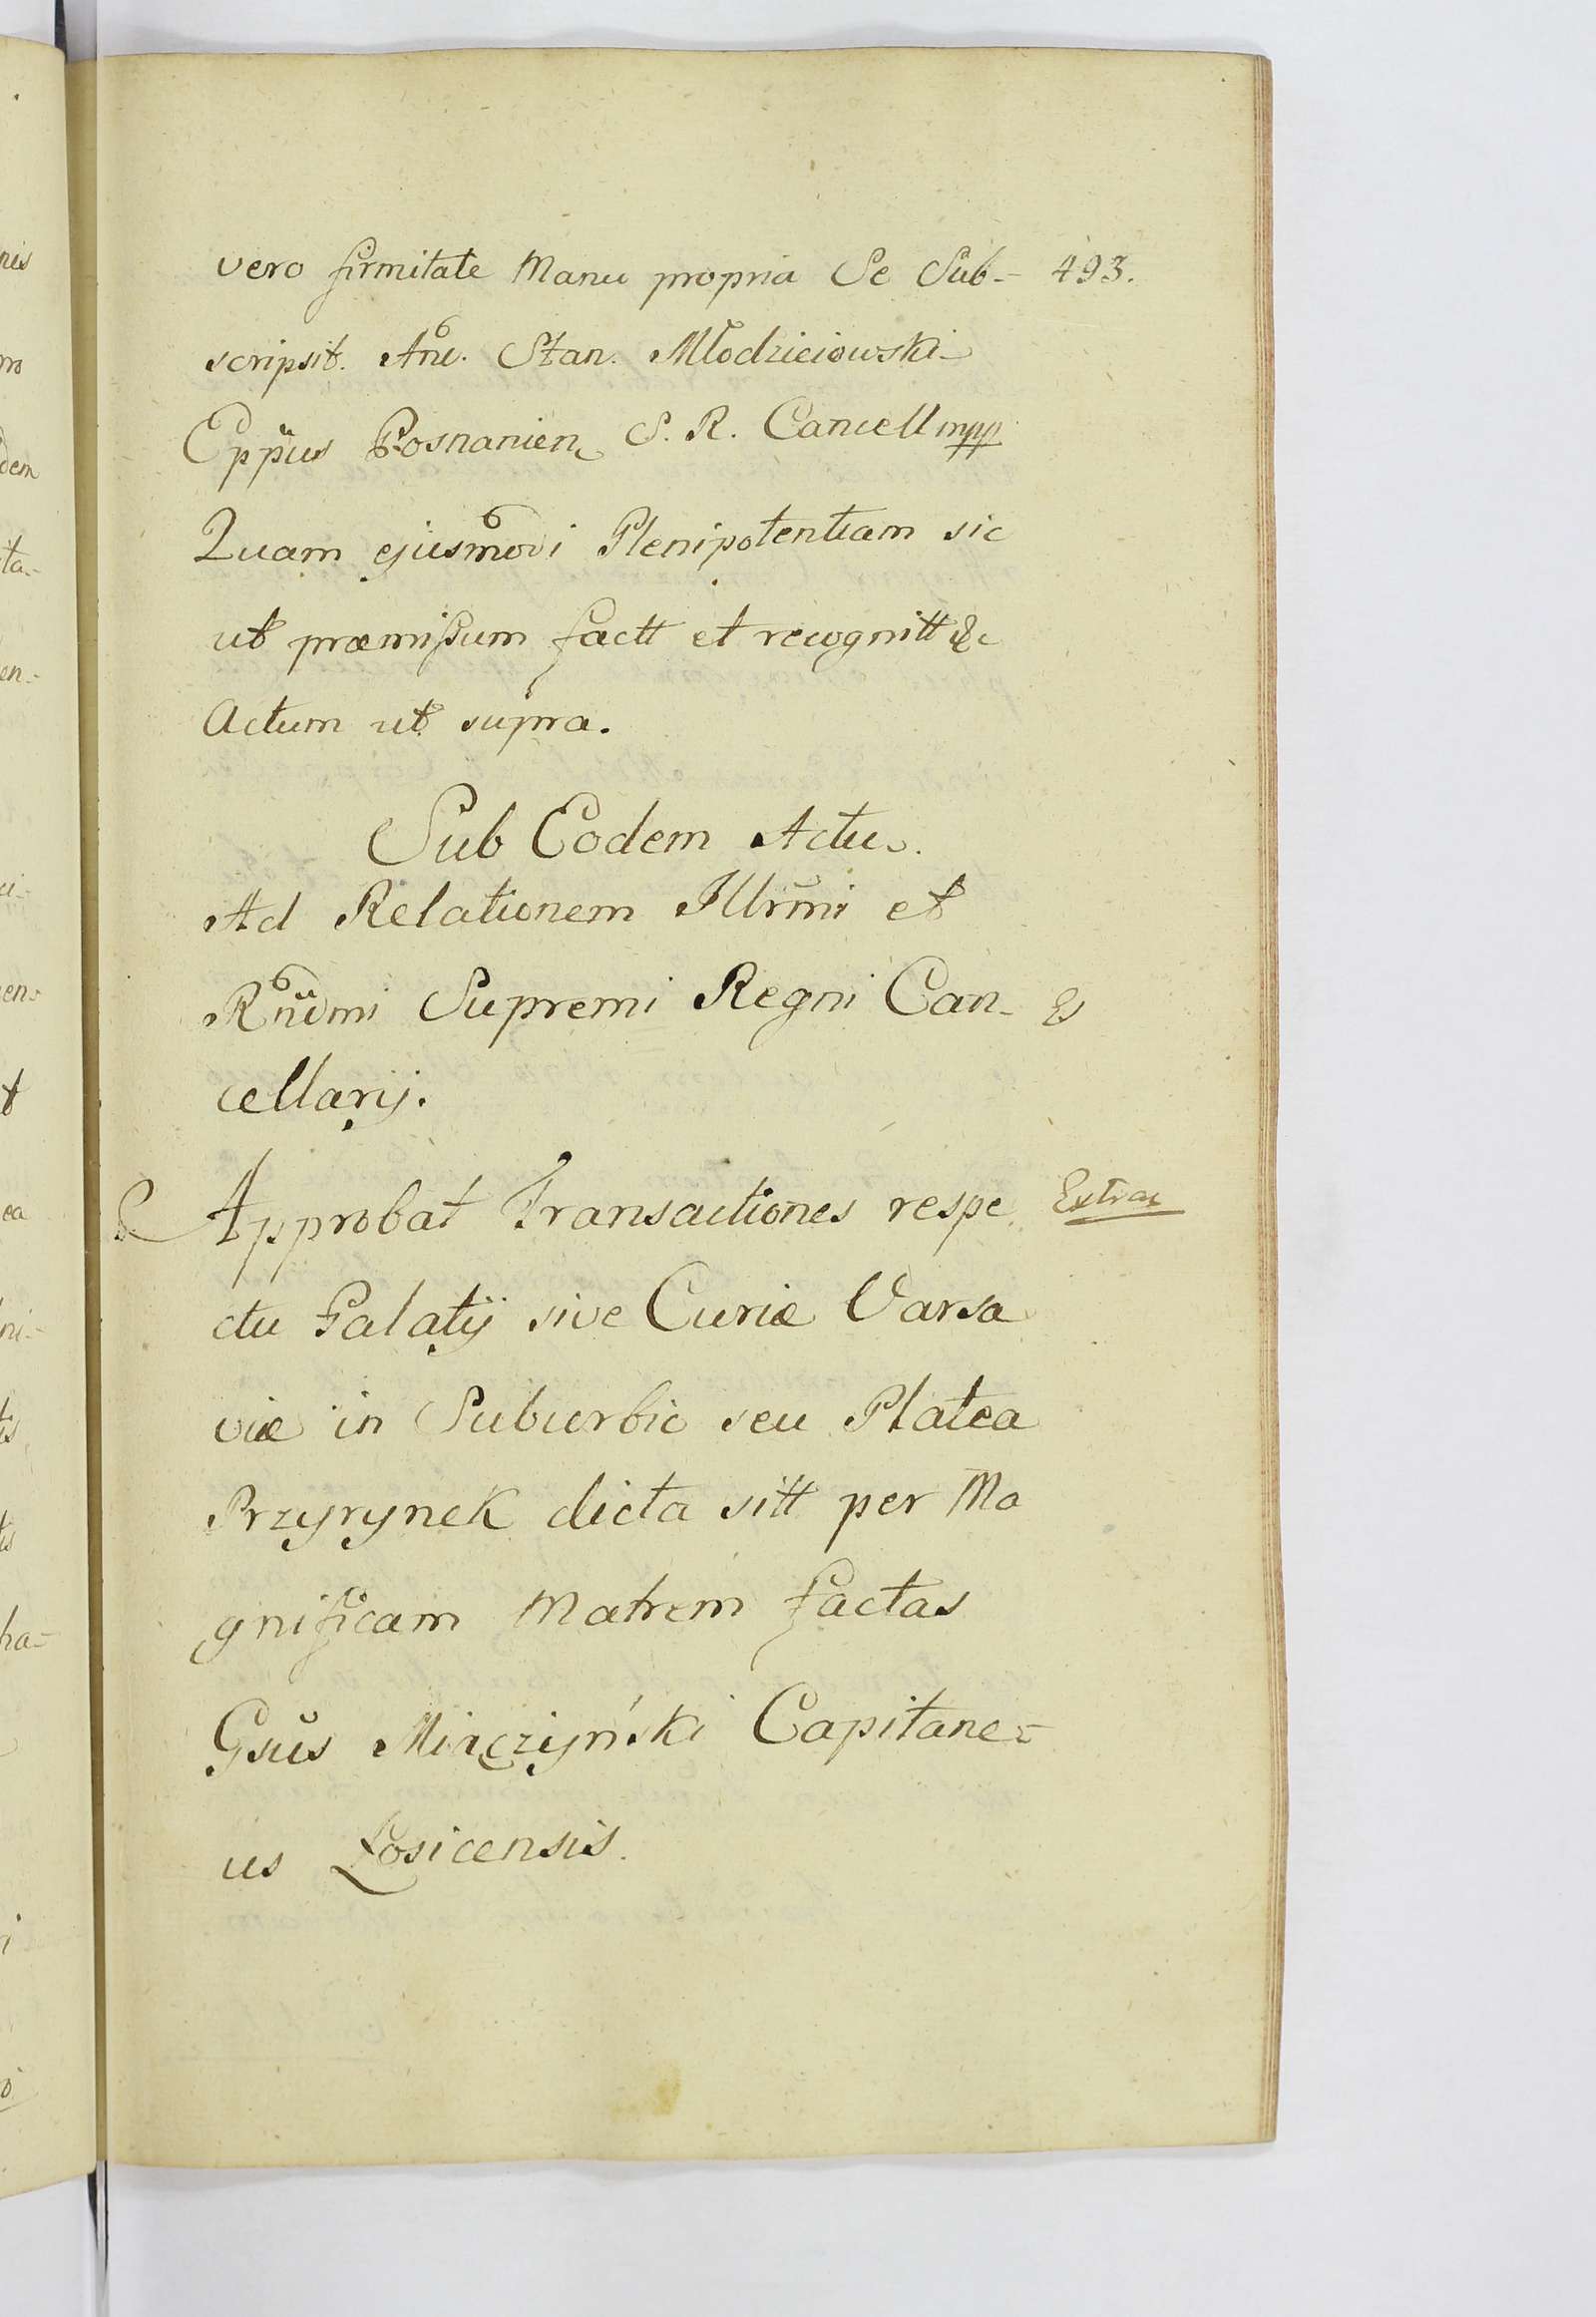 vero firmitate Manu propria Se Sub- 493.
scripsit. And. Stan. Młodzieiowski
Eppus Posnanien S. R. Cancell mpp
Quam ejusmodi Plenipotentiam sic
ut præmissum factt et recognitt &c
Actum ut supra.
Sub Eodem Actu.
Ad Relationem Illrmi et
Rndmi Supremi Regni Can-
cellarij.
Approbat Transactiones respe Extrac
ctu Palatij sive Curiæ Varsa
viæ in Suburbio seu Platea
Przyrynek dicta sitt per Ma
gnificam Matrem factas
Gsus Miączyński Capitane-
us Łosicensis.